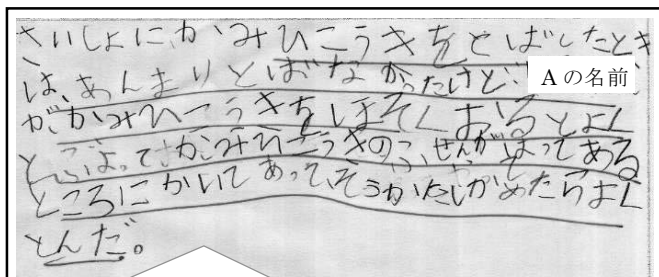 さいしょに、かみひこうきをとばしたとき
は、あんまりとばなかったけど、 Aの名前
がかみひこうきをほそくおるとよく
とぶよってかみひこうきのふせんがはってある
ところにかいてあって、そうかたしかめたらよく
とんだ。